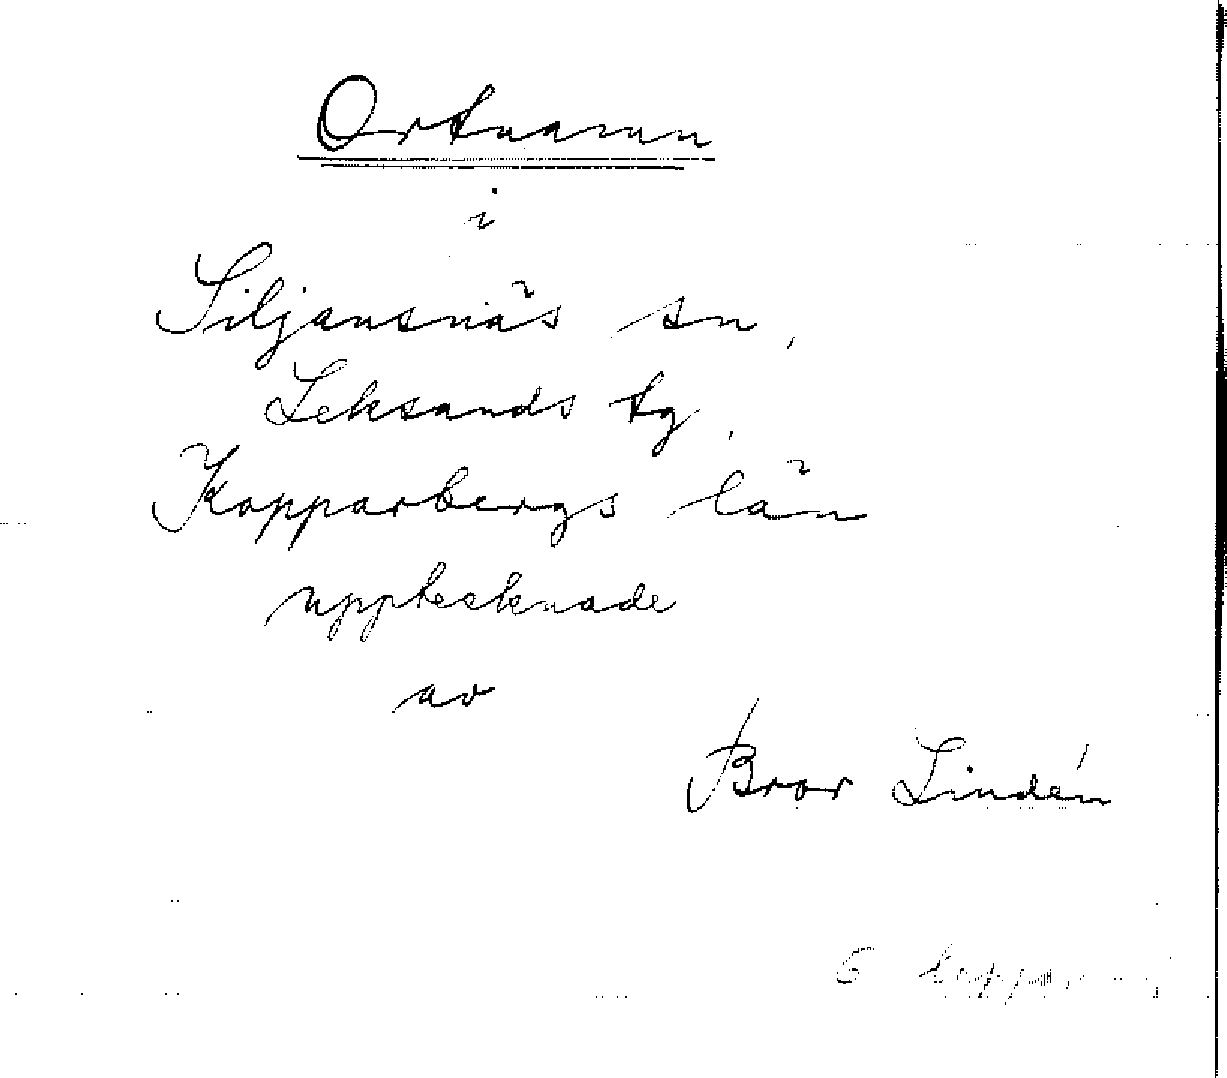 Ortnamn
i
Siljansnäs sn,
Leksands tg,
Kopparbergs län
upptecknade
av
Bror Lindén
5